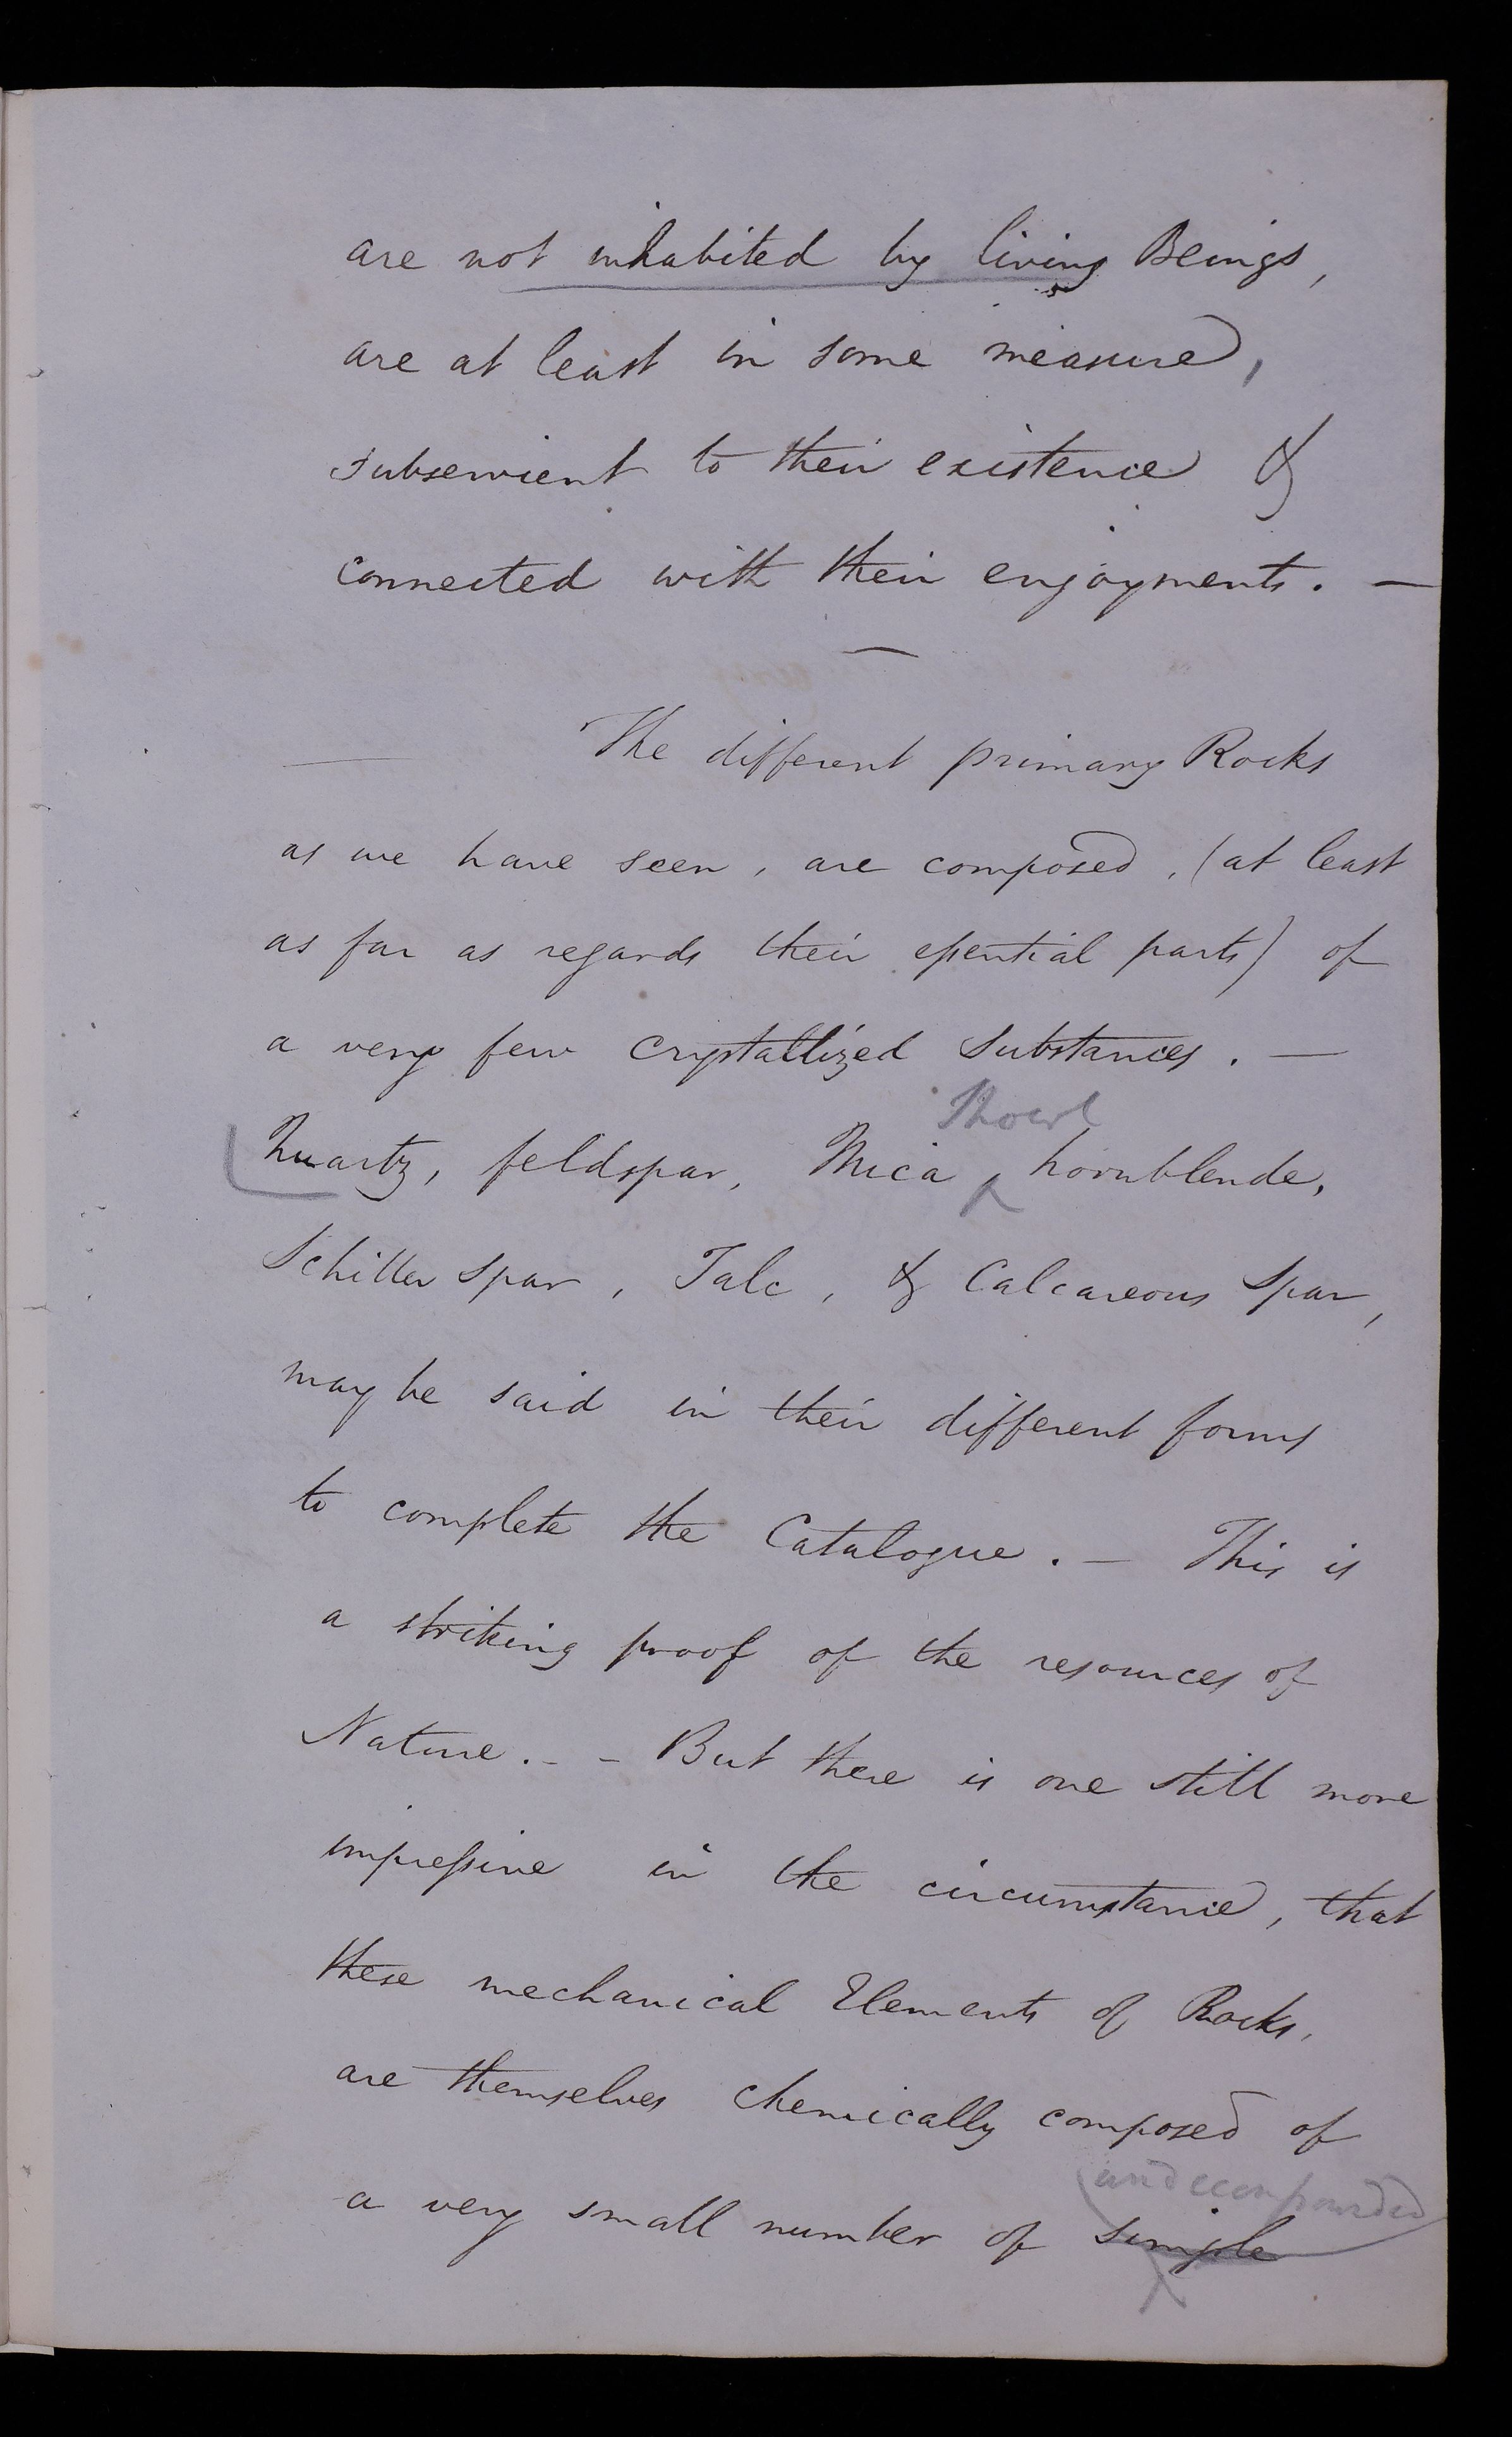 are not inhabited by living Beings,
are at least in some measure,
subservient to their existence &
connected with their enjoyments. —
—
The different primary Rocks
as we have seen, are composed, (at least
as far as regards their essential parts) of
a very few crystallized substances. —
Shoerl
Quartz, feldspar, Mica ^ hornblende,
Schiller spar, Talc, & Calcareous Spar,
may be said in their different forms
to complete the Catalogue. — This is
a striking proof of the resources of
Nature. - - But there is one still more
impressive in the circumstance, that
these mechanical Elements of Rocks,
are themselves chemically composed of
undecompounded
a very small number of simple